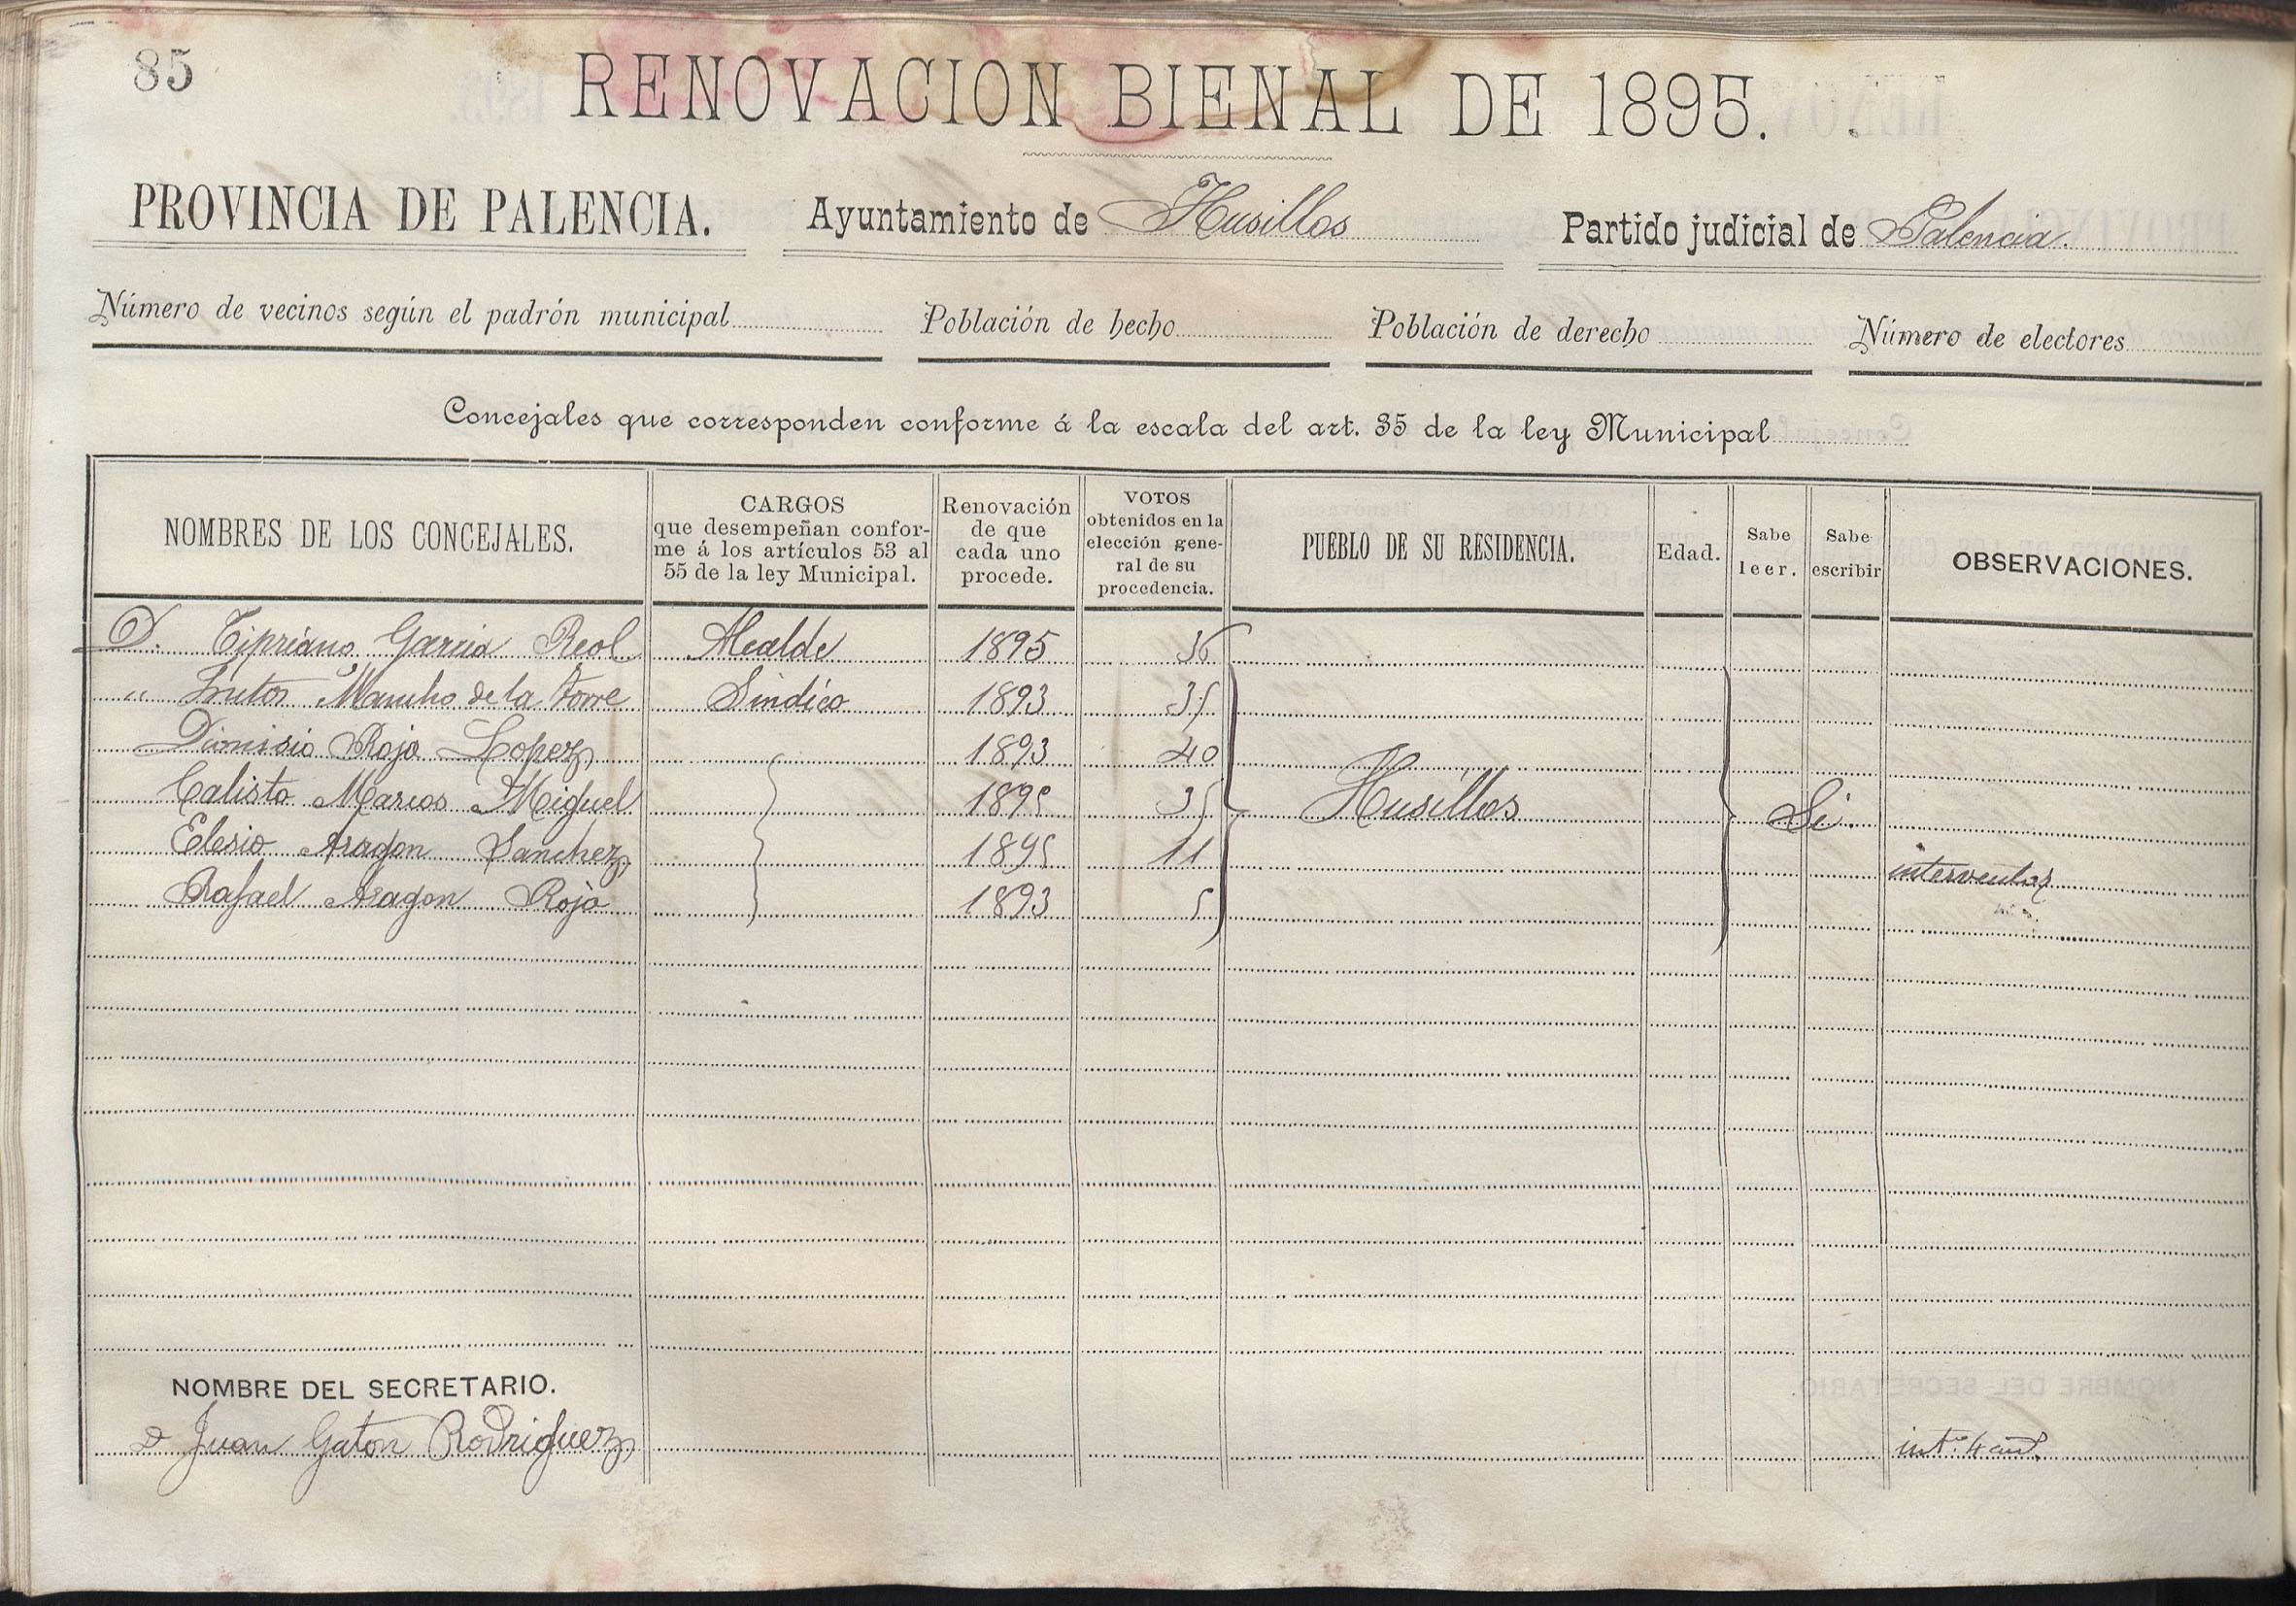 85
RENOVACION BIENAL DE 1895.
PROVINCIA DE PALENCIA. Ayuntamiento de Husillos Partido judicial de Palencia.
Número de vecinos según el padrón municipal Población de hecho Población de derecho Número de electores
Concejales que corresponden conforme á la escala del art. 35 de la ley Municipal
NOMBRES DE LOS CONCEJALES.
CARGOS
que desempeñan confor-
me á los artículos 53 al
55 de la ley Municipal.
Renovación
de que
cada uno
procede.
VOTOS
obtenidos en la
elección gene-
ral de su
procedencia.
PUEBLO DE SU RESIDENCIA.
Edad.
Sabe
leer.
Sabe
escribir
OBSERVACIONES.
D. Cipriano Garcia Reol Alcalde 1895 36
" Frutos Mancho de la Torre Sindico 1893 35
Dionisio Rojo Lopez 1893 40
Calisto Marcos Miguel 1895 35 Husillos Si.
Elesio Aragon Sanchez 1895 11 interventor
Rafael Aragon Rojo 1893 5
NOMBRE DEL SECRETARIO.
D Juan Gaton Rodriguez